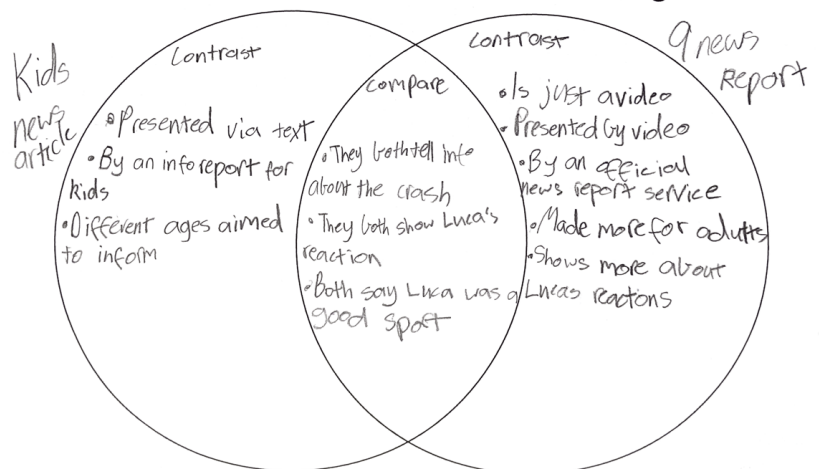 Kids
news
article
Contrast
•Presented via text
•By an info report for
kids
•Different ages aimed
to inform
compare
•They both tell info
about the crash
•They both show Luca's
reaction
•Both say Luca was a
good sport
Contrast
9 news
Report
•Is just a video
•Presented by video
•By an official
news report service
•Made more for adults
•Shows more about
Lucas reactons